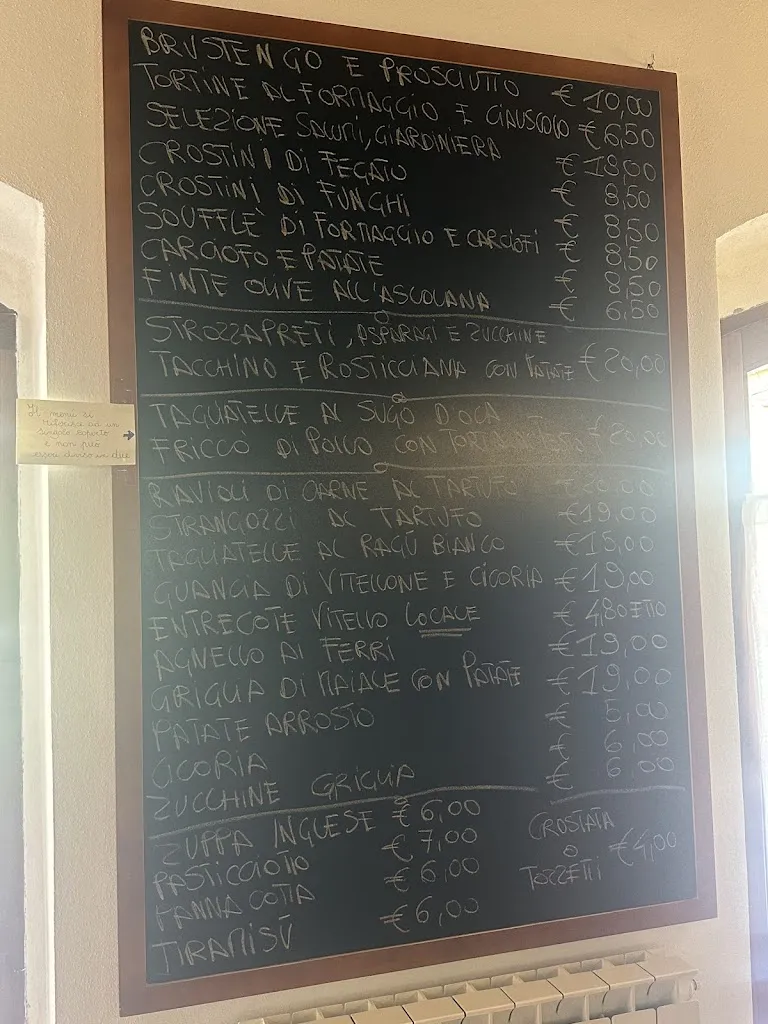 BRUSTENGO E PROSCIUTTO € 10,00
TORTINE AL FORMAGGIO E CIAUSCOLO € 6,50
SELEZIONE SALUMI, GIARDINIERA € 18,00
CROSTINI DI FEGATO € 8,50
CROSTINI DI FUNGHI € 8,50
SOUFFLÈ DI FORMAGGIO E CARCIOFI € 8,50
CARCIOFO E PATATE € 8,50
FINTE OLIVE ALL'ASCOLANA € 6,50
STROZZAPRETI, ASPARAGI E ZUCCHINE
TACCHINO E ROSTICCIANA CON PATATE € 20,00
TAGLIATELLE AL SUGO D'OCA
FRICCÒ DI POLLO CON TORTA € 20,00
RAVIOLI DI CARNE AL TARTUFO
STRANGOZZI AL TARTUFO € 19,00
TAGLIATELLE AL RAGÙ BIANCO € 15,00
GUANCIA DI VITELLONE E CICORIA € 19,00
ENTRECOTE VITELLO LOCALE € 4,80 ETTO
AGNELLO AI FERRI € 19,00
GRIGLIA DI MAIALE CON PATATE € 19,00
PATATE ARROSTO € 5,00
CICORIA € 6,00
ZUCCHINE GRIGLIA € 6,00
ZUPPA INGLESE € 6,00
PASTICCIOTTO € 7,00
PANNA COTTA € 6,00
TIRAMISÙ € 6,00
CROSTATA
O
TOZZETTI € 4,00
Il menù si
riferisce ad un
singolo coperto
e non può
essere diviso in due